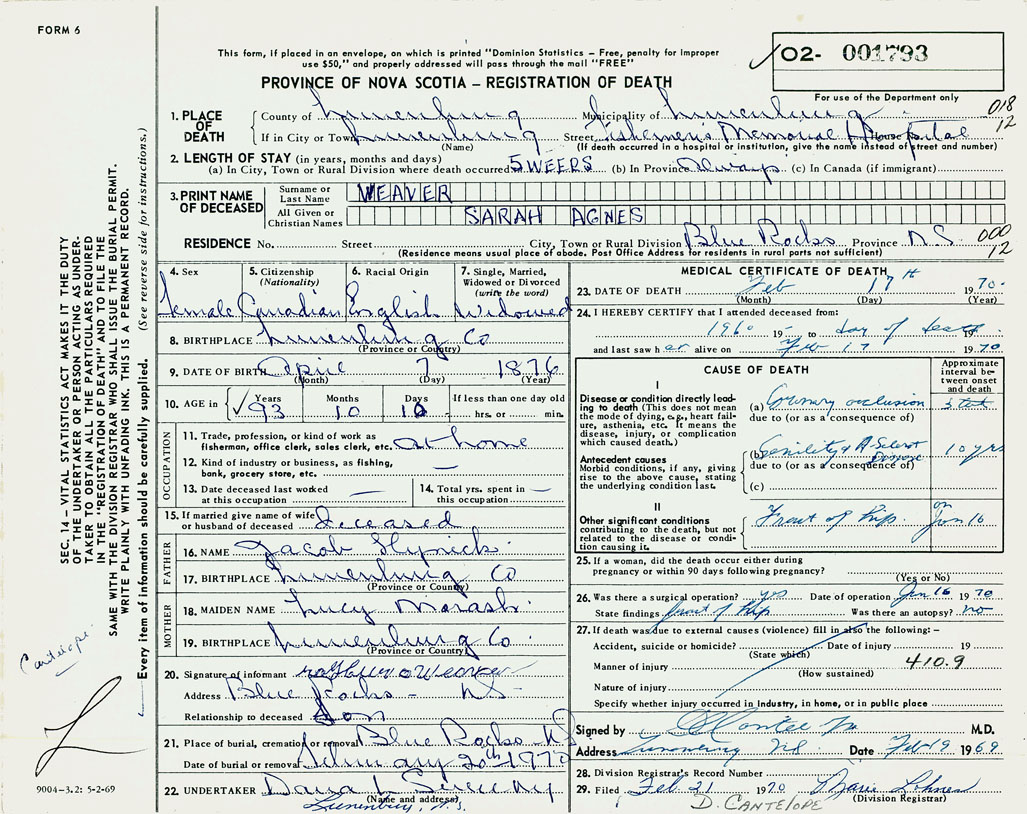 FORM 6
This form, if placed in an envelope, on which is printed "Dominion Statistics – Free, penalty for improper
use $50," and properly addressed will pass through the mail "FREE"
O2- 001793
PROVINCE OF NOVA SCOTIA – REGISTRATION OF DEATH
For use of the Department only
018
12
1. PLACE OF DEATH
County of Lunenburg Municipality of Lunenburg
If in City or Town Lunenburg Street Fishermen's Memorial Hospital
(Name) (If death occurred in a hospital or institution, give the name instead of street and number)
2. LENGTH OF STAY (in years, months and days)
(a) In City, Town or Rural Division where death occurred 5 WEEKS (b) In Province always (c) In Canada (if immigrant)
3. PRINT NAME OF DECEASED
Surname or Last Name WEAVER
All Given or Christian Names SARAH AGNES
RESIDENCE No. Street City, Town or Rural Division Blue Rocks Province N.S. 000
12
(Residence means usual place of abode. Post Office Address for residents in rural parts not sufficient)
4. Sex female
5. Citizenship (Nationality) Canadian
6. Racial Origin English
7. Single, Married, Widowed or Divorced (write the word) Widowed
8. BIRTHPLACE Lunenburg Co
(Province or Country)
9. DATE OF BIRTH April 7 1876
(Month) (Day) (Year)
10. AGE in Years 93 Months 10 Days 10 If less than one day old
hrs. or min.
OCCUPATION
11. Trade, profession, or kind of work as
fisherman, office clerk, sales clerk, etc. at home
12. Kind of industry or business, as fishing,
bank, grocery store, etc. —
13. Date deceased last worked
at this occupation —
14. Total yrs. spent in
this occupation —
15. If married give name of wife
or husband of deceased deceased
FATHER
16. NAME Jacob
17. BIRTHPLACE Lunenburg Co
(Province or Country)
MOTHER
18. MAIDEN NAME Lucy
19. BIRTHPLACE Lunenburg Co.
(Province or Country)
20. Signature of informant Weaver
Address Blue Rocks – NS –
Relationship to deceased Son
21. Place of burial, cremation or removal Blue Rocks NS
Date of burial or removal 20th 1970
22. UNDERTAKER
(Name and address)
Lunenburg, N.S.
MEDICAL CERTIFICATE OF DEATH
23. DATE OF DEATH Feb 17th 1970
(Month) (Day) (Year)
24. I HEREBY CERTIFY that I attended deceased from:
1960 19- to day of death 19
and last saw her alive on Feb 17 1970
CAUSE OF DEATH
Approximate interval between onset and death
I
Disease or condition directly leading to death (This does not mean the mode of dying, e.g., heart failure, asthenia, etc. It means the disease, injury, or complication which caused death.)
(a) occlusion
due to (or as a consequence of)
Antecedent causes
Morbid conditions, if any, giving rise to the above cause, stating the underlying condition last.
(b) Senility & A-Sclerot Disease 10 yrs
due to (or as a consequence of)
(c)
II
Other significant conditions contributing to the death, but not related to the disease or condition causing it.
Fract of hip. on Jan 16
25. If a woman, did the death occur either during
pregnancy or within 90 days following pregnancy?
(Yes or No)
26. Was there a surgical operation? yes Date of operation Jan 16 1970
State findings fract of hip Was there an autopsy? no
27. If death was due to external causes (violence) fill in also the following: –
Accident, suicide or homicide? Date of injury 19
(State which)
Manner of injury 410.9
(How sustained)
Nature of injury
Specify whether injury occurred in industry, in home, or in public place
Signed by M.D.
Address Date Feb 19 1969
28. Division Registrar's Record Number
29. Filed Feb 21 1970 Marie
(Division Registrar)
D. CANTELOPE
SEC. 14 – VITAL STATISTICS ACT MAKES IT THE DUTY
OF THE UNDERTAKER OR PERSON ACTING AS UNDER-
TAKER TO OBTAIN ALL THE PARTICULARS REQUIRED
IN THE "REGISTRATION OF DEATH" AND TO FILE THE
SAME WITH THE DIVISION REGISTRAR WHO SHALL ISSUE THE BURIAL PERMIT.
WRITE PLAINLY WITH UNFADING INK. THIS IS A PERMANENT RECORD.
Every item of information should be carefully supplied. (See reverse side for instructions.)
Cantelope
9004-3.2: 5-2-69